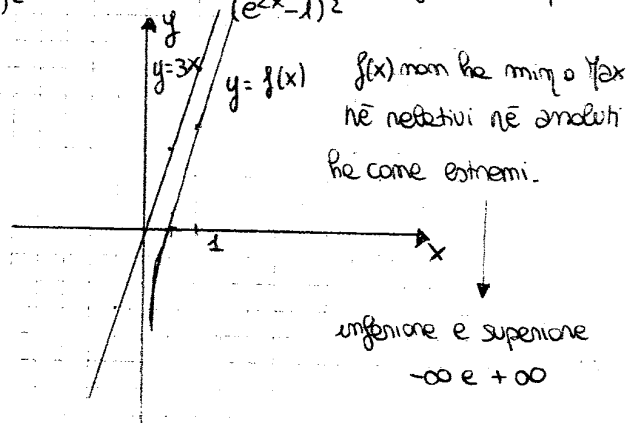 (e^{2x}-1)^2
y
y=3x
y=f(x)
f(x) non ha min o Max
nè relativi nè assoluti
ha come estremi.
1
x
inferiore e superiore
-∞ e +∞